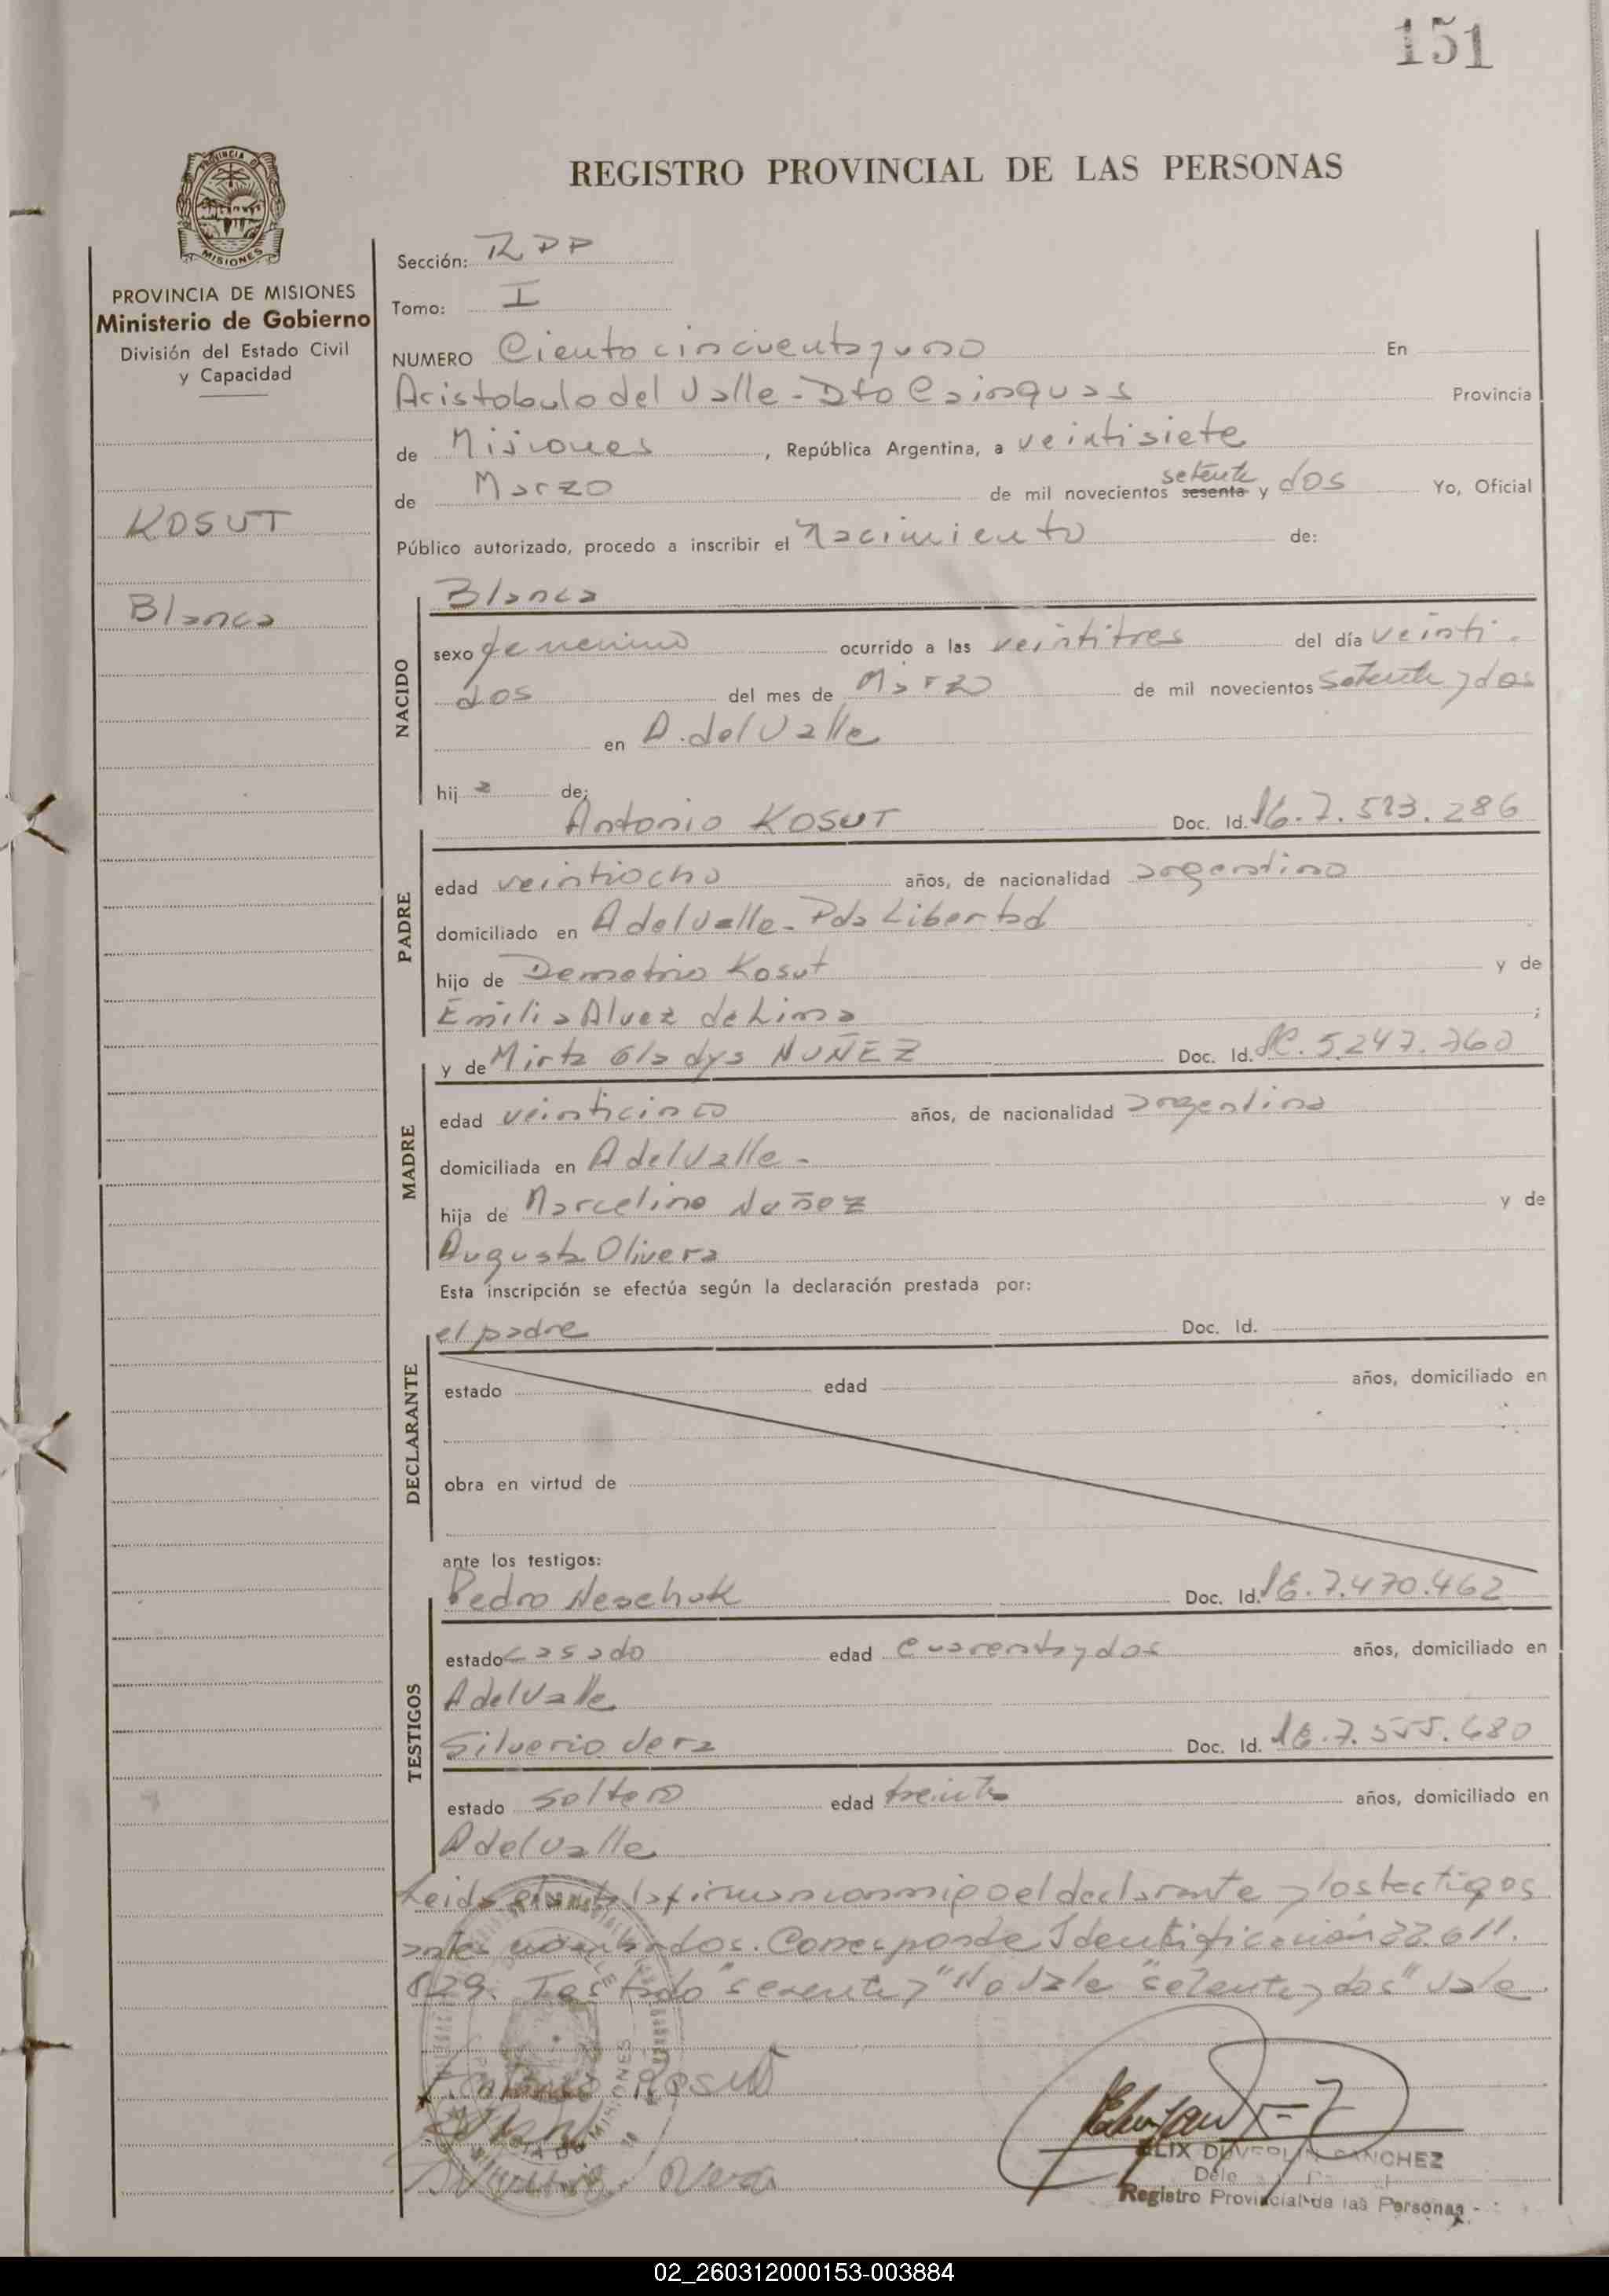 151
PROVINCIA DE
MISIONES
REGISTRO PROVINCIAL DE LAS PERSONAS
PROVINCIA DE MISIONES
Ministerio de Gobierno
División del Estado Civil
y Capacidad
KOSUT
Blanca
Sección: RDP
Tomo: I
NUMERO Ciento cincuenta y uno En
Aristobulo del Valle - Dto Cainguas Provincia
de Misiones, República Argentina, a veintisiete
de Marzo de mil novecientos sesenta setenta y dos Yo, Oficial
Público autorizado, procedo a inscribir el Nacimiento de:
NACIDO
Blanca
sexo femenino ocurrido a las veintitres del día veinti-
dos del mes de Marzo de mil novecientos setenta y dos
en A. del Valle
hij a de:
PADRE
Antonio KOSUT Doc. Id. 7.513.286
edad veintiocho años, de nacionalidad argentino
domiciliado en A del Valle - Pda Libertad
hijo de Demetrio Kosut y de
Emilia Alvez de Lima ;
MADRE
y de Mirta Gladys NUÑEZ Doc. Id. 5.247.760
edad veinticinco años, de nacionalidad argentina
domiciliada en A del Valle -
hija de Marcelino Nuñez y de
Augusta Olivera
Esta inscripción se efectúa según la declaración prestada por:
DECLARANTE
el padre Doc. Id.
estado edad años, domiciliado en
obra en virtud de
ante los testigos:
TESTIGOS
Pedro Neschuk Doc. Id. 7.470.462
estado casado edad cuarenta y dos años, domiciliado en
A del Valle
Silverio Vera Doc. Id. 7.555.680
estado soltero edad treinta años, domiciliado en
A del Valle
Leida el acta la firman conmigo el declarante y los testigos
antes nombrados. Corresponde Identificación 22.611.
829. Testado "sesenta y" No Vale "setenta y dos" Vale
Antonio Kosut
Silverio Vera
FELIX DUVERLIN SANCHEZ
Registro Provincial de las Personas
02_260312000153-003884